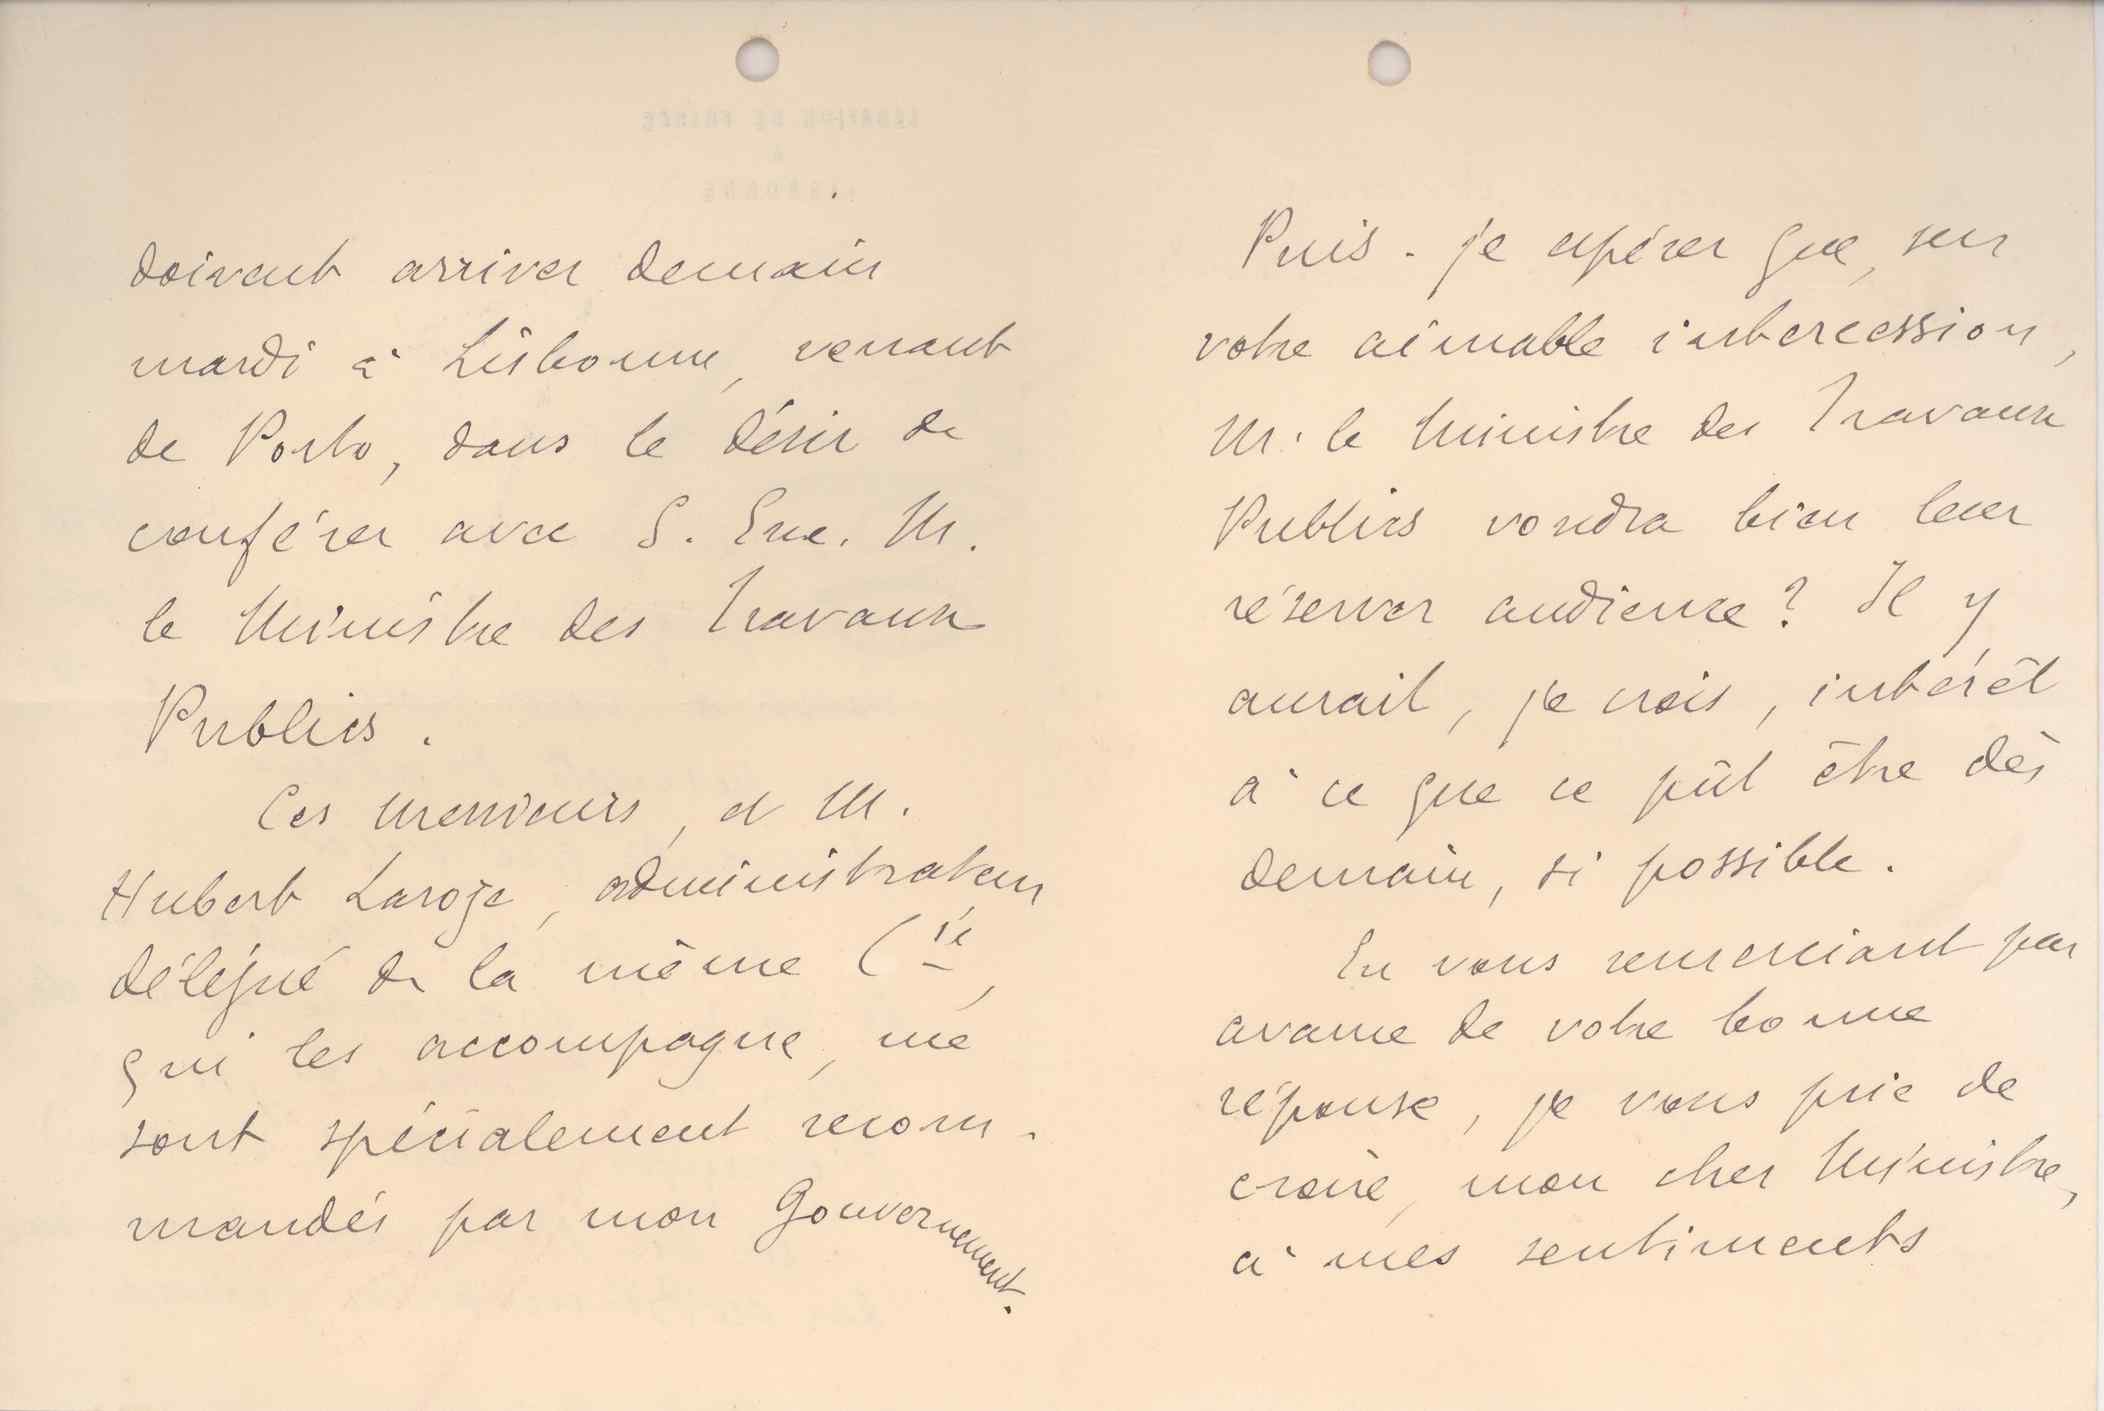 doivent arriver demain
mardi à Lisbonne, venant
de Porto, dans le désir de
conférer avec S. Exc. M.
le Ministre des Travaux
Publics.
Ces Messieurs, et M.
Hubert Laroze, administrateur
délégué de la même Cie,
qui les accompagne, me
sont spécialement recom-
mandés par mon Gouvernement.
Puis-je espérer que, sur
votre aimable intercession,
M. le Ministre des Travaux
Publics voudra bien leur
réserver audience? Il y
aurait, je crois, intérêt
à ce que ce pût être dès
demain, si possible.
En vous remerciant par
avance de votre bonne
réponse, je vous prie de
croire, mon cher Ministre,
à mes sentiments
LEGATION DE FRANCE
A
LISBONNE